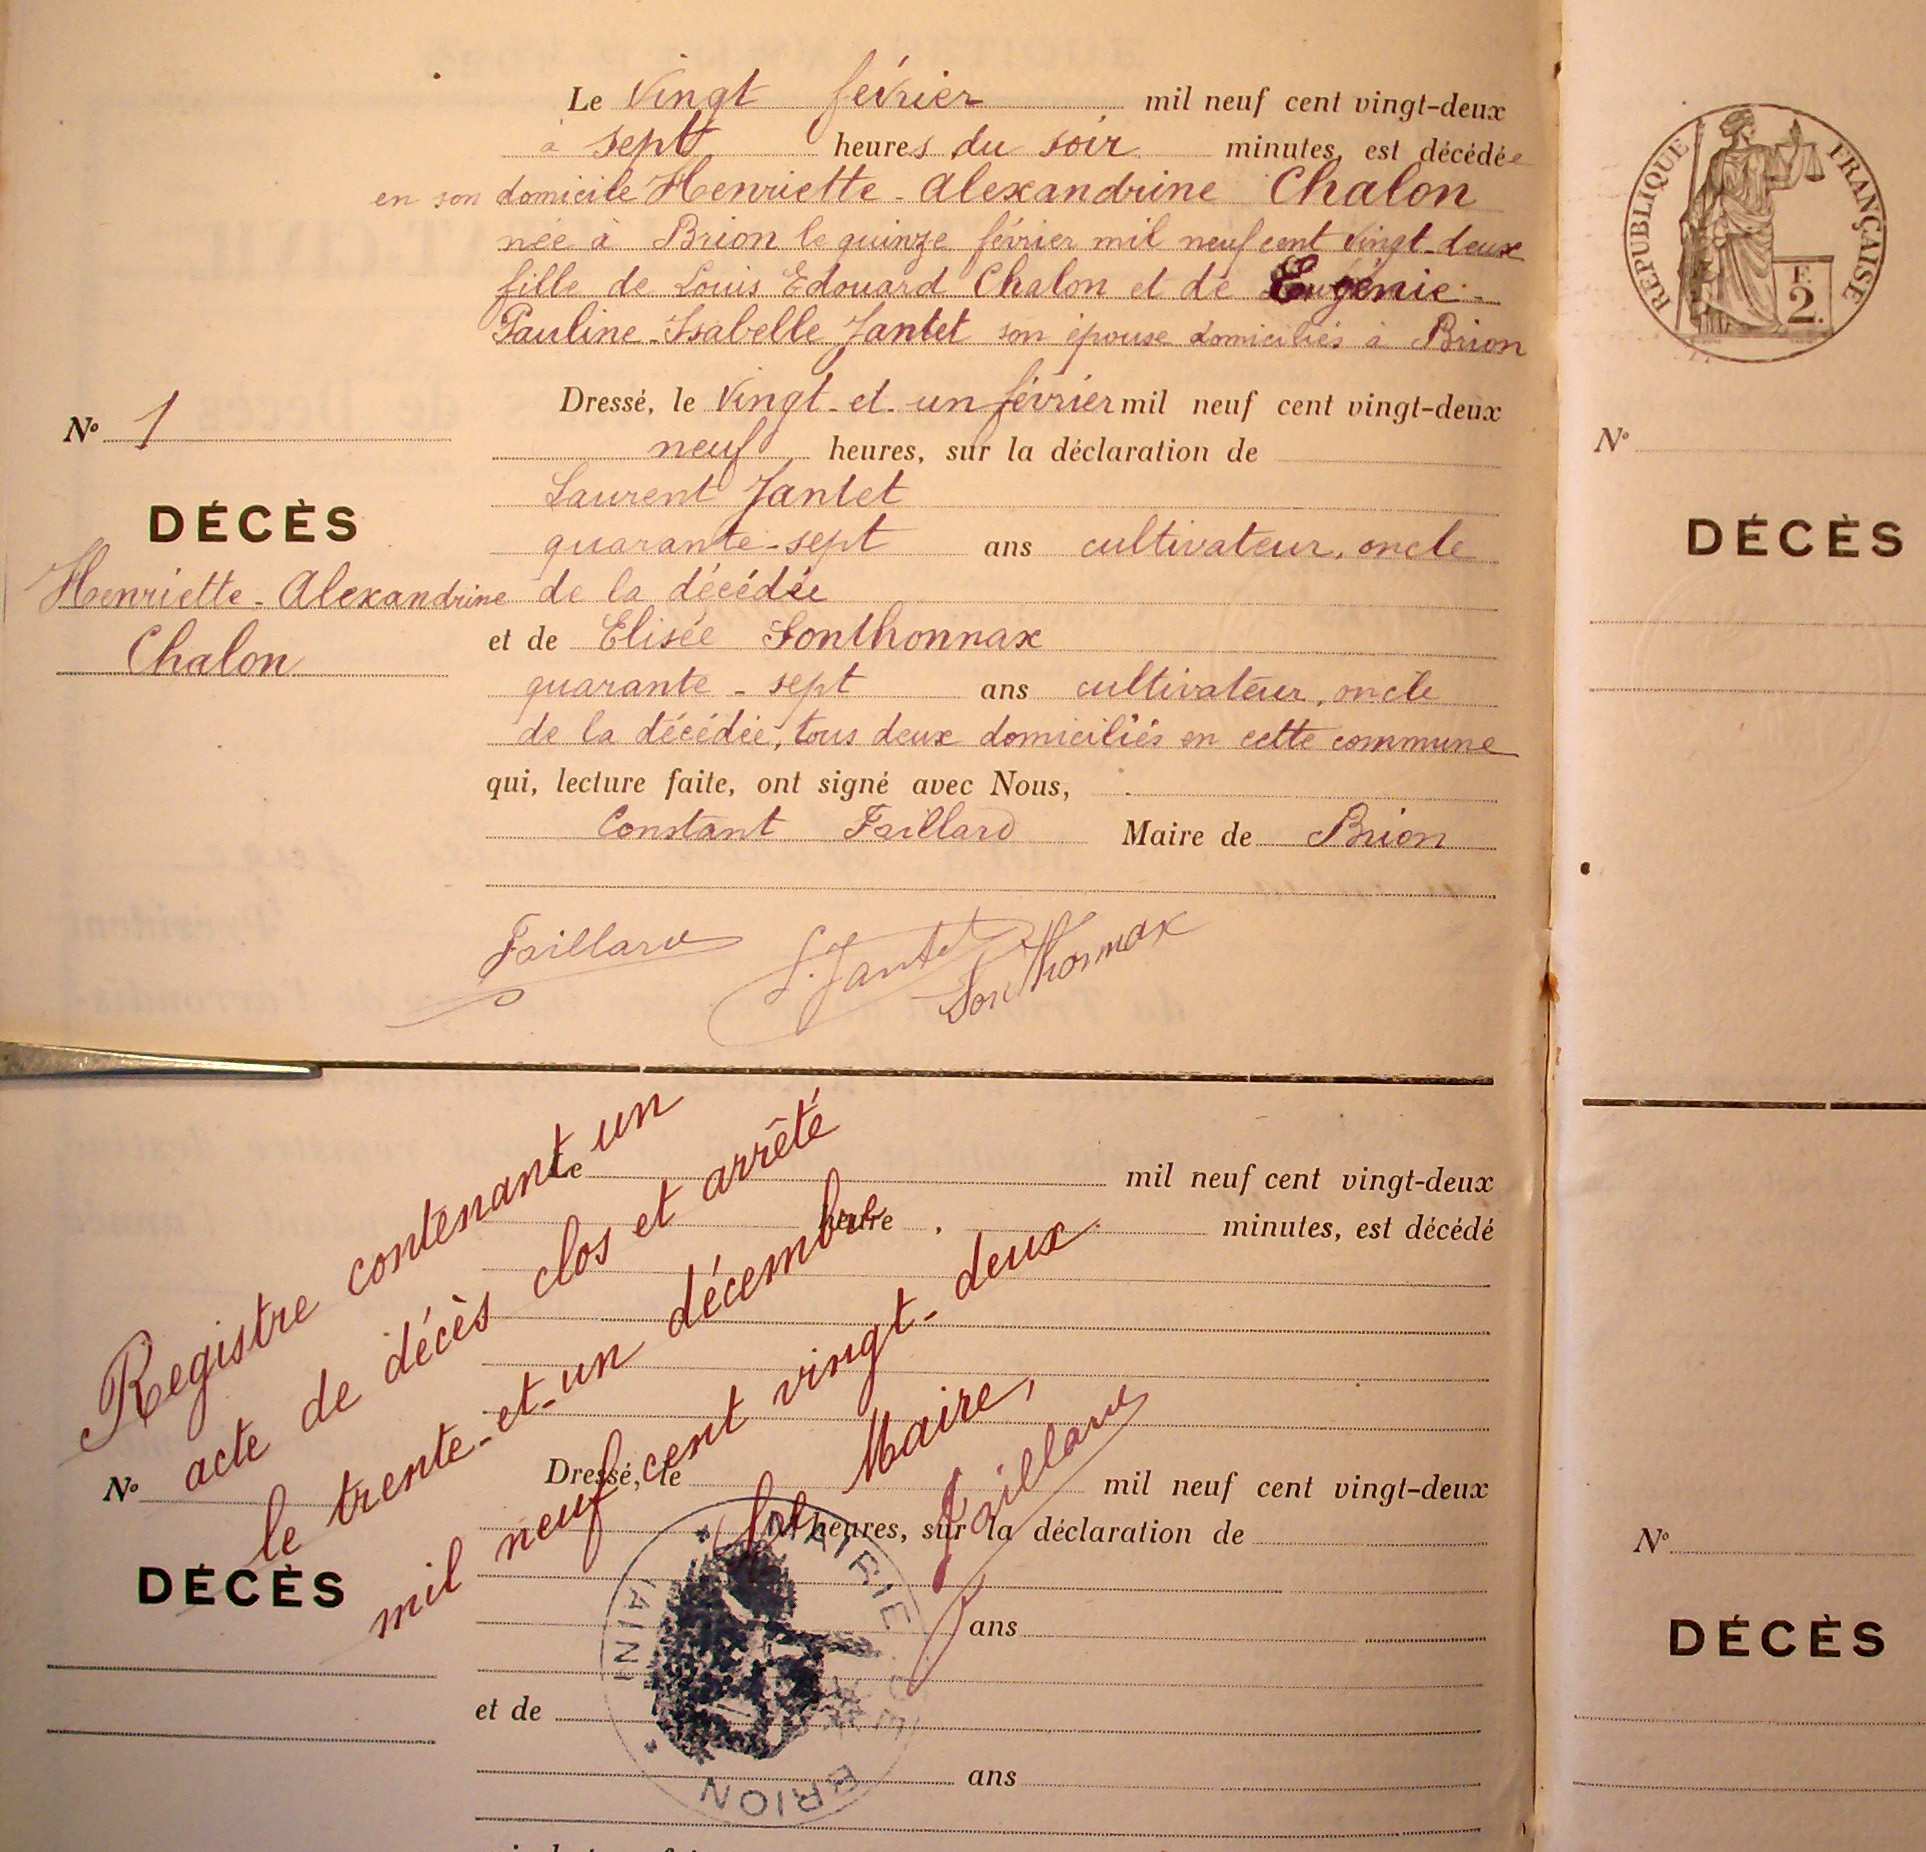 Le vingt février mil neuf cent vingt-deux
à sept heures du soir minutes, est décédée
en son domicile Henriette-Alexandrine Chalon
née à Brion le quinze février mil neuf cent vingt-deux
fille de Louis Edouard Chalon et de Eugénie-
Pauline-Isabelle Jantet son épouse domiciliés à Brion
Dressé, le vingt-et-un février mil neuf cent vingt-deux
neuf heures, sur la déclaration de
Laurent Jantet
quarante-sept ans cultivateur, oncle
de la décédée
et de Elisée Sonthonnax
quarante-sept ans cultivateur, oncle
de la décédée, tous deux domiciliés en cette commune
qui, lecture faite, ont signé avec Nous,
Constant Faillard Maire de Brion
Faillard L. Jantet Sonthonnax
N° 1
DÉCÈS
Henriette-Alexandrine
Chalon
Registre contenant un
acte de décès clos et arrêté
le trente-et-un décembre
mil neuf cent vingt-deux
Le Maire,
Faillard
Le mil neuf cent vingt-deux
heure minutes, est décédé
Dressé, le mil neuf cent vingt-deux
heures, sur la déclaration de
ans
et de
ans
N°
DÉCÈS
MAIRIE DE BRION
(AIN)
RÉPUBLIQUE FRANÇAISE
F.
2.
N°
DÉCÈS
N°
DÉCÈS